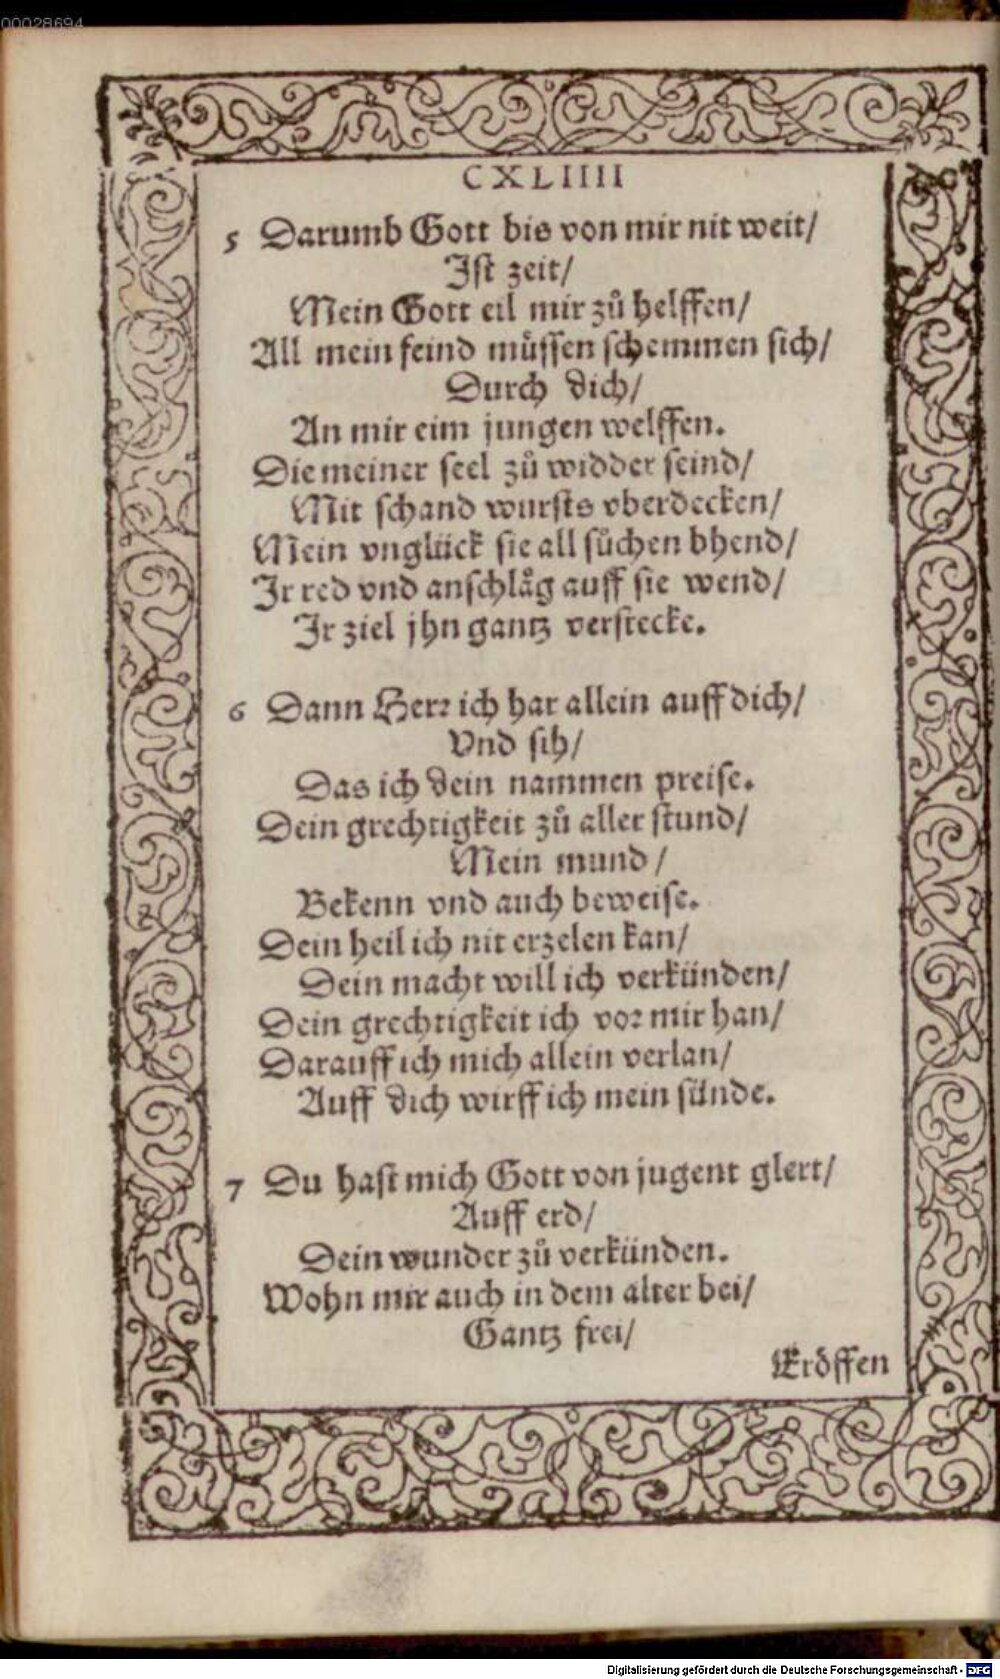 00028694
CXLIIII
5 Darumb Gott bis von mir nit weit/
Ist zeit/
Mein Gott eil mir zů helffen/
All mein feind müssen schemmen sich/
Durch dich/
An mir eim jungen welffen.
Die meiner seel zů widder seind/
Mit schand wursts vberdecken/
Mein vnglück sie all sůchen bhend/
Ir red vnd anschläg auff sie wend/
Ir ziel jhn gantz verstecke.
6 Dann Herr ich har allein auff dich/
Vnd sih/
Das ich dein nammen preise.
Dein grechtigkeit zů aller stund/
Mein mund/
Bekenn vnd auch beweise.
Dein heil ich nit erzelen kan/
Dein macht will ich verkünden/
Dein grechtigkeit ich vor mir han/
Darauff ich mich allein verlan/
Auff dich wirff ich mein sünde.
7 Du hast mich Gott von jugent glert/
Auff erd/
Dein wunder zů verkünden.
Wohn mir auch in dem alter bei/
Gantz frei/
Eröffen
Digitalisierung gefördert durch die Deutsche Forschungsgemeinschaft - DFG